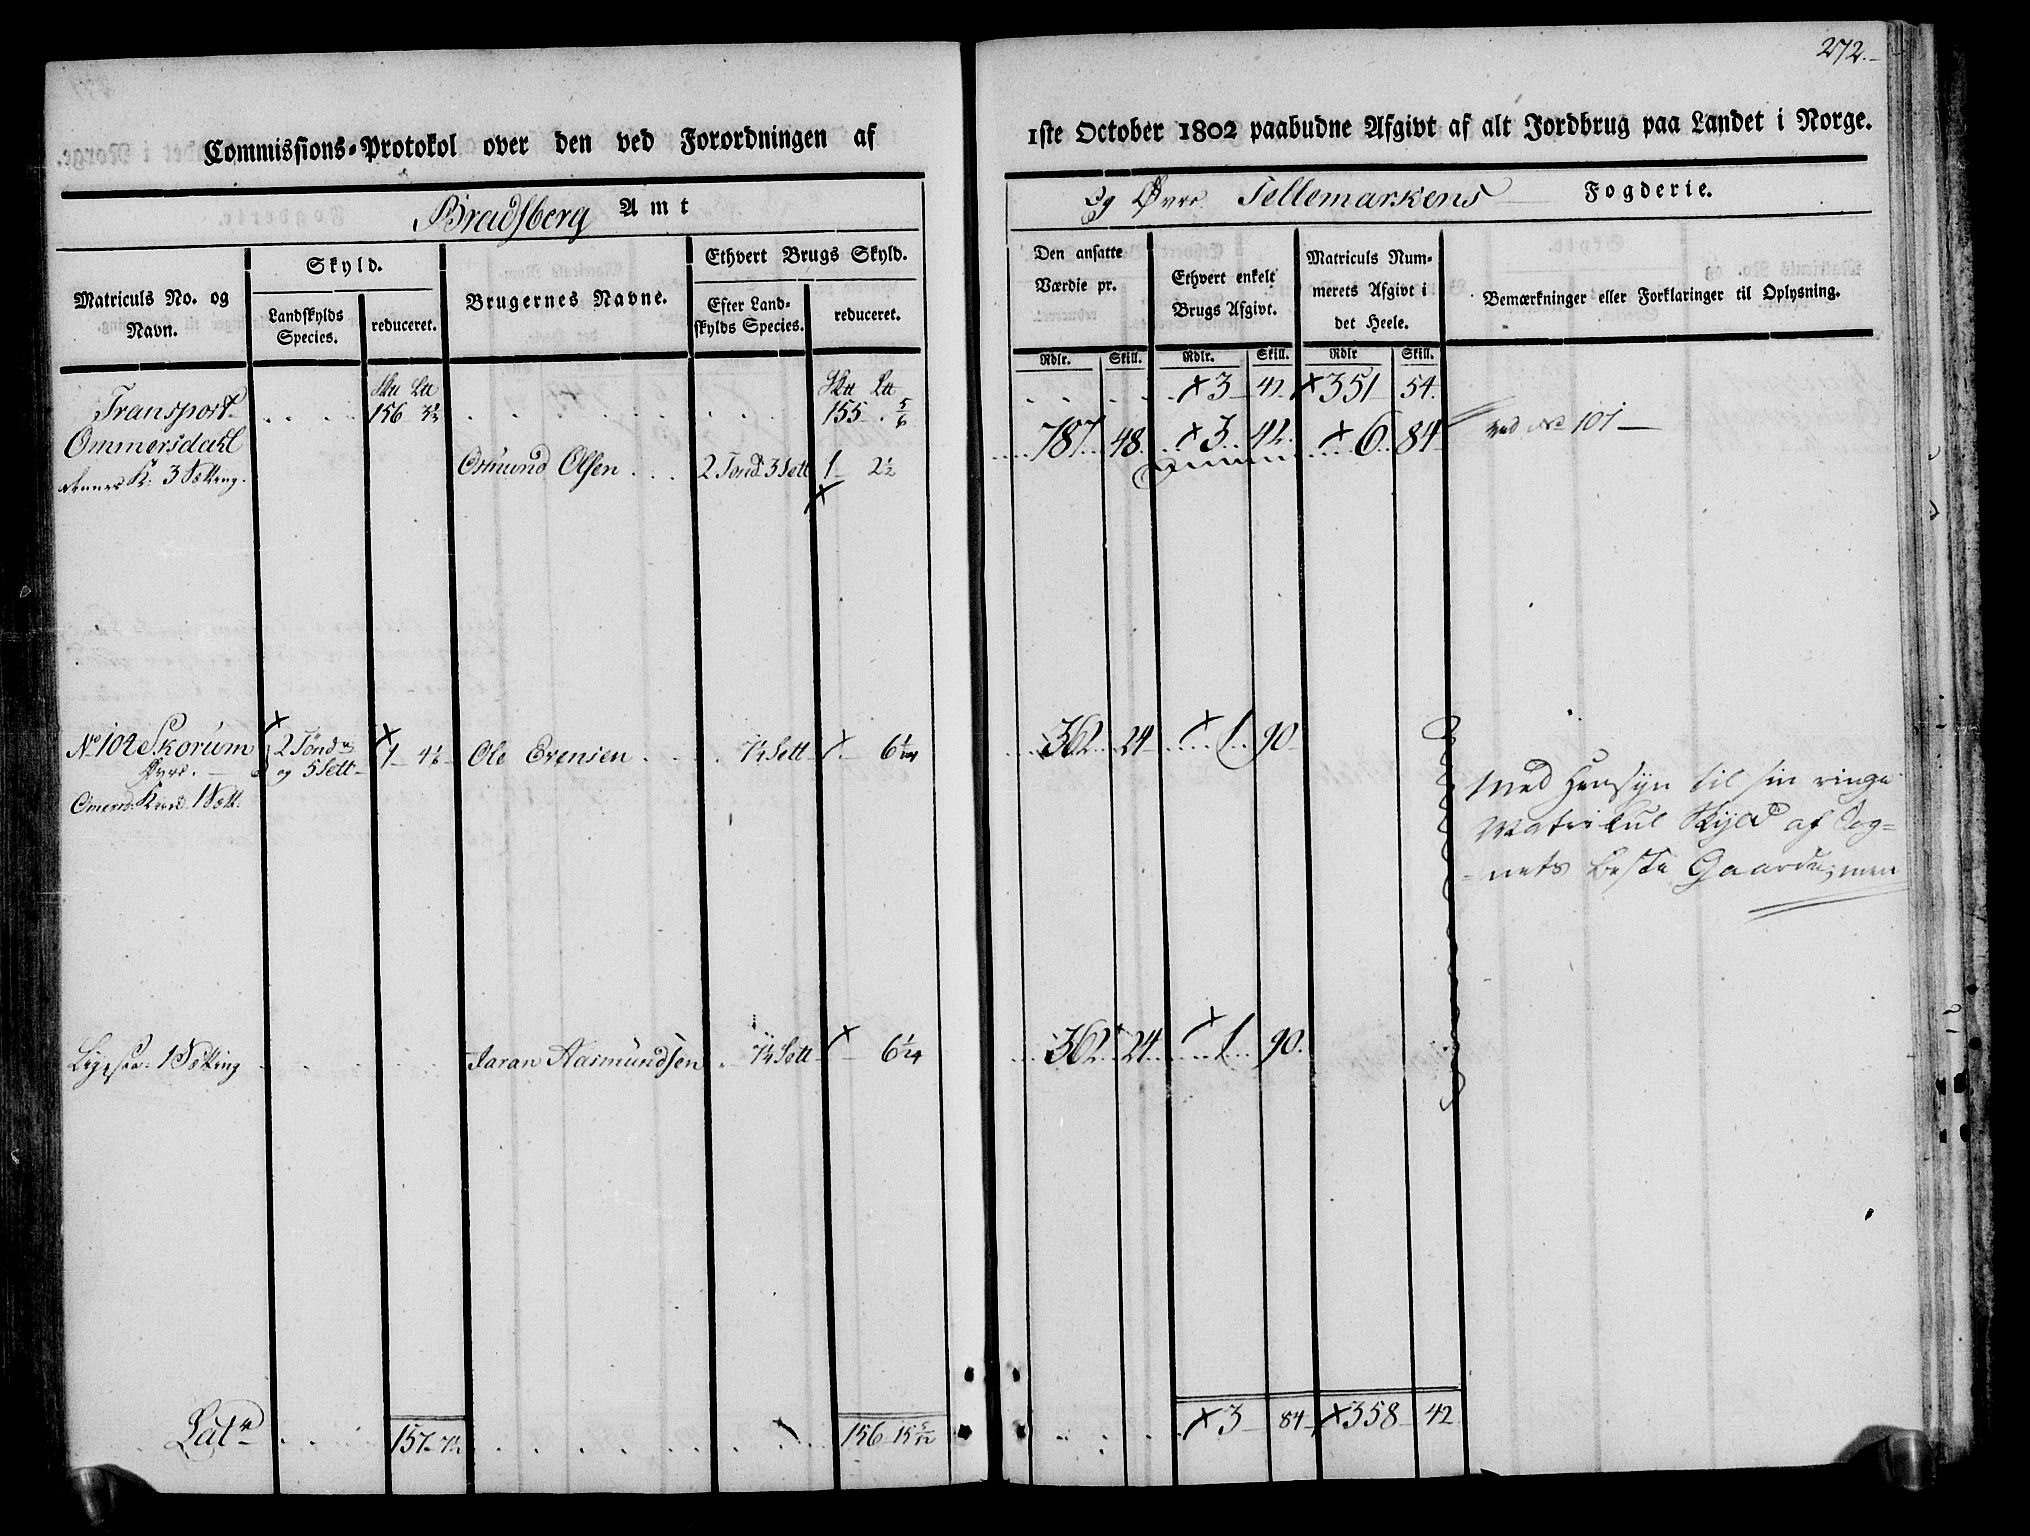 272.
Commissions-Protokol over den ved Forordningen af 1ste October 1802 paabudne Afgivt af alt Jordbrug paa Landet i Norge.
Bradsberg Amt
Og Øvre Tellemarkens Fogderie.
Matriculs No. og Navn.
Skyld.
Landskylds Species.
reduceret.
Brugernes Navne.
Ethvert Brugs Skyld.
Efter Landskylds Species.
reduceret.
Den ansatte Værdie pr.
Ethvert enkelt Brugs Afgivt.
Matriculs Nummerets Afgivt i det Heele.
Bemærkninger eller Forklaringer til Oplysning.
Rdlr. Skill. Rdlr. Skill. Rdlr Skill.
Transport 156 3½ 155 5/6 × 3 42 × 351 54
Ommersdahl 3 Sætting. Osmund Olsen 2 Tønd 3 Sett 1 2½ 787 48 × 3 42 × 6 84 ved No 101
No 102 Skorum 2 Tønd og 5 Sett 1 4½ Ole Evensen 7½ Sett 6 1/24 362 24 × 1 90
1 Sætt.
Med Hensyn til sin ringe
Matricul Skyld af Sog=
=nets beste Gaarde, men
Ligesaa 1 Sætting Jaran Aasmundsen 7½ Sett 6 1/24 362 24 × 1 90
Lat 157 7½ 156 15 5/12 × 3 84 × 358 42